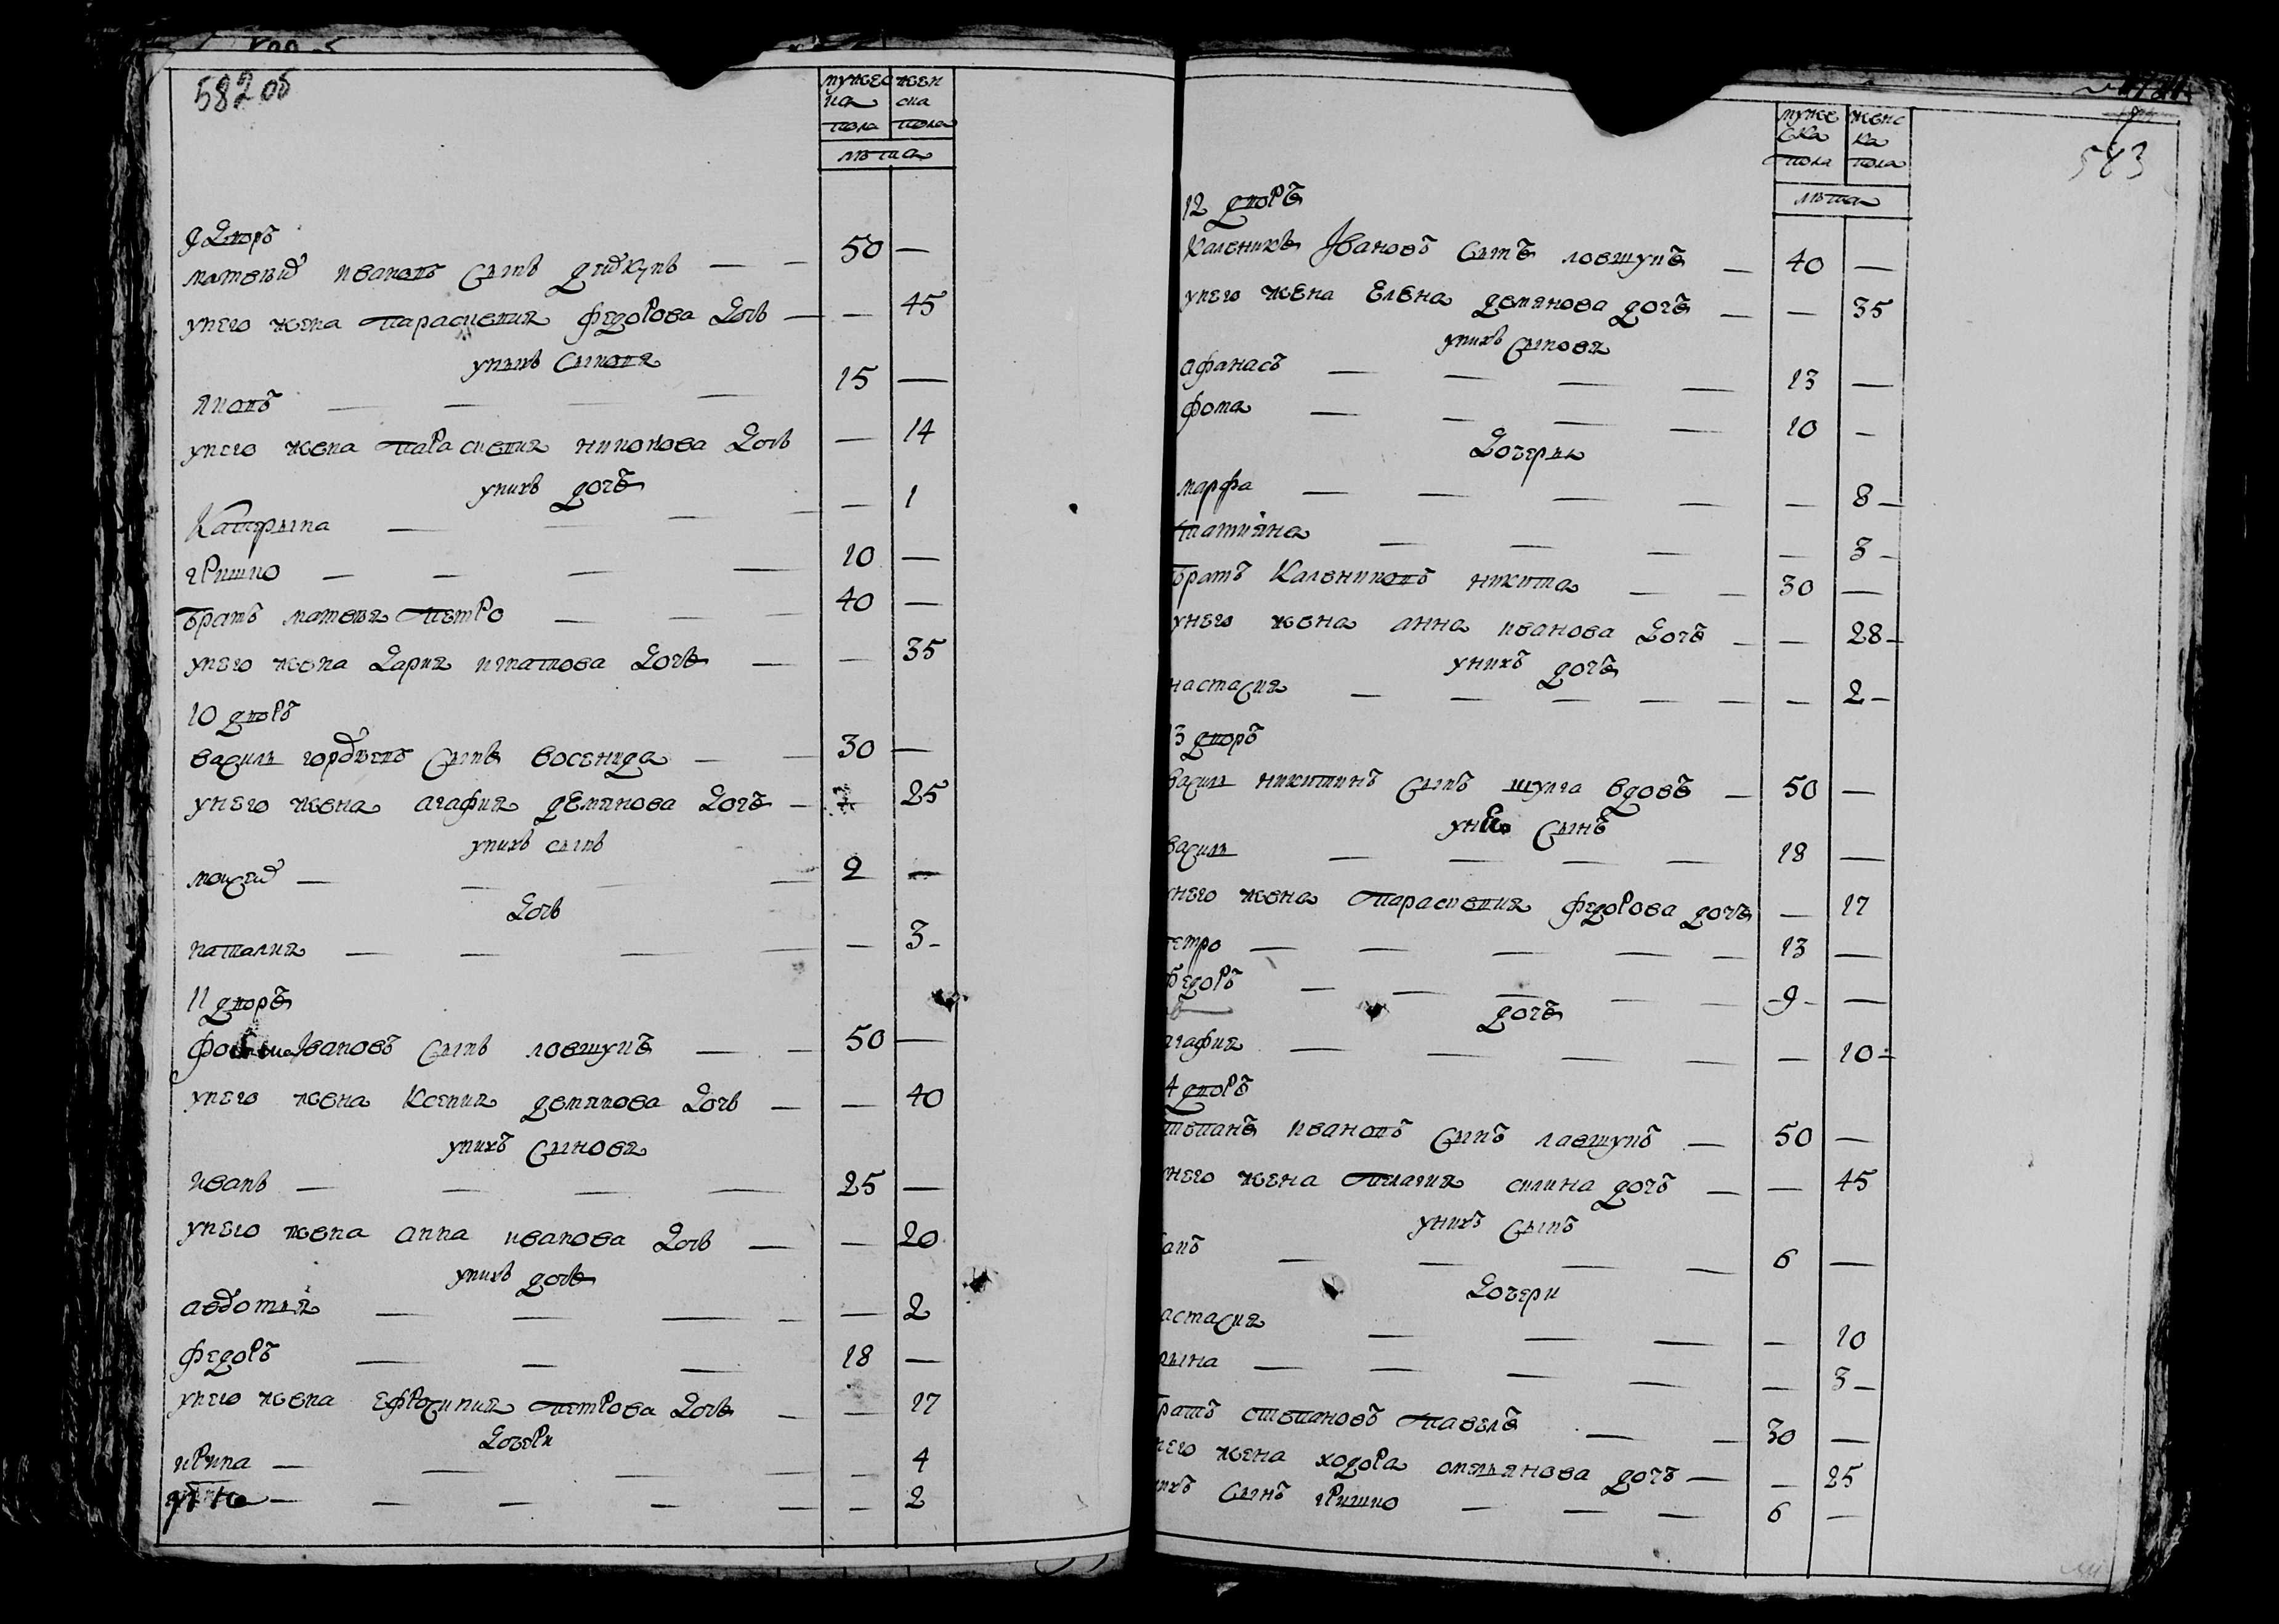 582 об
мужес жен
ка ска
пола пола
лѣта
9 Дворъ
матвѣй ивановъ сынъ дидкунъ — — 50 —
унего жена параскевия федорова Дочь — — 45
унихъ Сыновя
яковъ — — — — 15 —
унего жена параскевия никонова Дочь — 14
унихъ дочь
Катерына — — — — — 1
гришко — — — — 10 —
братъ матвея петро — — — 40 —
унего жена Дария игнатова Дочь — — 35
10 дворъ
василь гордѣевъ Сынъ восенида — — 30 —
унего жена агафия демянова Дочь — 25
унихъ сынъ
мойсей — — — — 2 —
Дочь
наталия — — — — — 3 —
11 дворъ
Ивановъ Сынъ ловшунъ — — 50 —
унего жена Ксения демянова Дочь — — 40
унихъ Сыновя
иванъ — — — — 25 —
унего жена анна иванова Дочь — — 20
унихъ дочь
авдотья — — — — — 2
федоръ — — — 18 —
унего жена ефросиния петрова Дочь — — 17
Дочери
ирина — — — — — 4
— — — — — — 2
583
муже женс
ска ка
пола пола
лѣта
12 дворъ
Каленикъ Ивановъ Сынъ ловшунъ — 40 —
унего жена Елена демянова дочь — — 35
унихъ Сыновя
афанасъ — — — — 13 —
фома — — — — 10 —
Дочеры
марфа — — — — — 8 —
татияна — — — — 3 —
братъ Калениковъ никита — — 30 —
унего жена анна иванова Дочь — — 28 —
унихъ дочь
настасия — — — — — — 2 —
13 дворъ
василь никитинъ Сынъ шулга вдовъ — 50 —
унего Сынъ
василь — — — — 18 —
унего жена параскевия федорова дочь — 17
петро — — — — — 13 —
федоръ — — — — — 9 — —
дочь
агафия — — — — — 10 —
4 дворъ
степанъ ивановъ Сынъ лавшунъ — 50 —
унего жена пелагия силина дочь — — 45
унихъ Сынъ
ванъ — — — — 6 —
Дочери
астасия — — — — 10
рына — — — — — 3 —
братъ степановъ павелъ — — 30 —
него жена ходора омельянова дочь — — 25
нихъ Сынъ гришко — — — 6 —